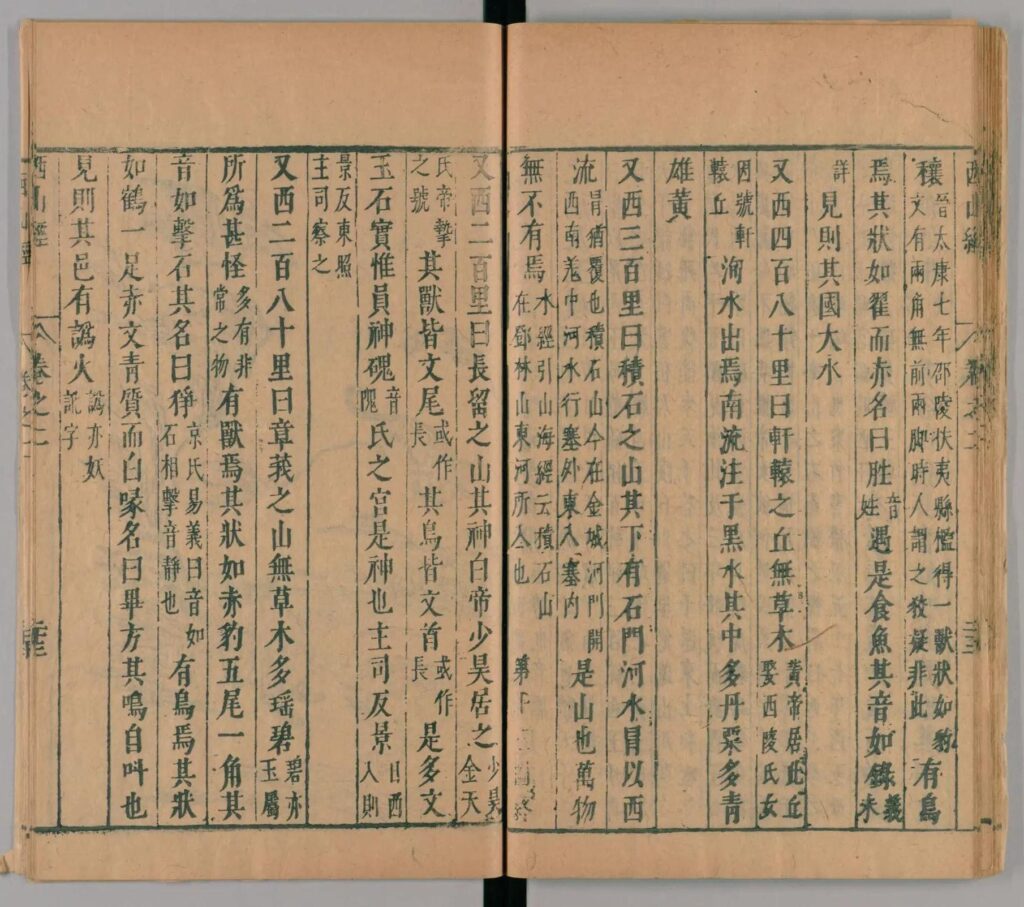 西山經 卷之二
穰晉太康七年邵陵扶夷縣檻得一獸狀如豹文有兩角無前兩脚時人謂之狡疑非此有鳥
焉其狀如翟而赤名曰胜音姓遇是食魚其音如錄義未
詳見則其國大水
又西四百八十里曰軒轅之丘無草木黃帝居此丘娶西陵氏女
因號軒轅丘洵水出焉南流注于黑水其中多丹粟多青
雄黃
又西三百里曰積石之山其下有石門河水冒以西
流冒猶覆也積石山今在金城河門關西南羌中河水行塞外東入塞內是山也萬物
無不有焉水經引山海經云積石山在鄧林山東河所入也
又西二百里曰長留之山其神白帝少昊居之少昊金天
氏帝摯之號其獸皆文尾或作長其鳥皆文首或作長是多文
玉石實惟員神磈音隗氏之宮是神也主司反景日西入則
景反東照主司察之
又西二百八十里曰章莪之山無草木多瑶碧碧亦玉屬
所爲甚怪多有非常之物有獸焉其狀如赤豹五尾一角其
音如擊石其名曰猙京氏易義曰音如石相擊音靜也有鳥焉其狀
如鶴一足赤文青質而白喙名曰畢方其鳴自叫也
見則其邑有譌火譌亦妖訛字
西山經 卷之二